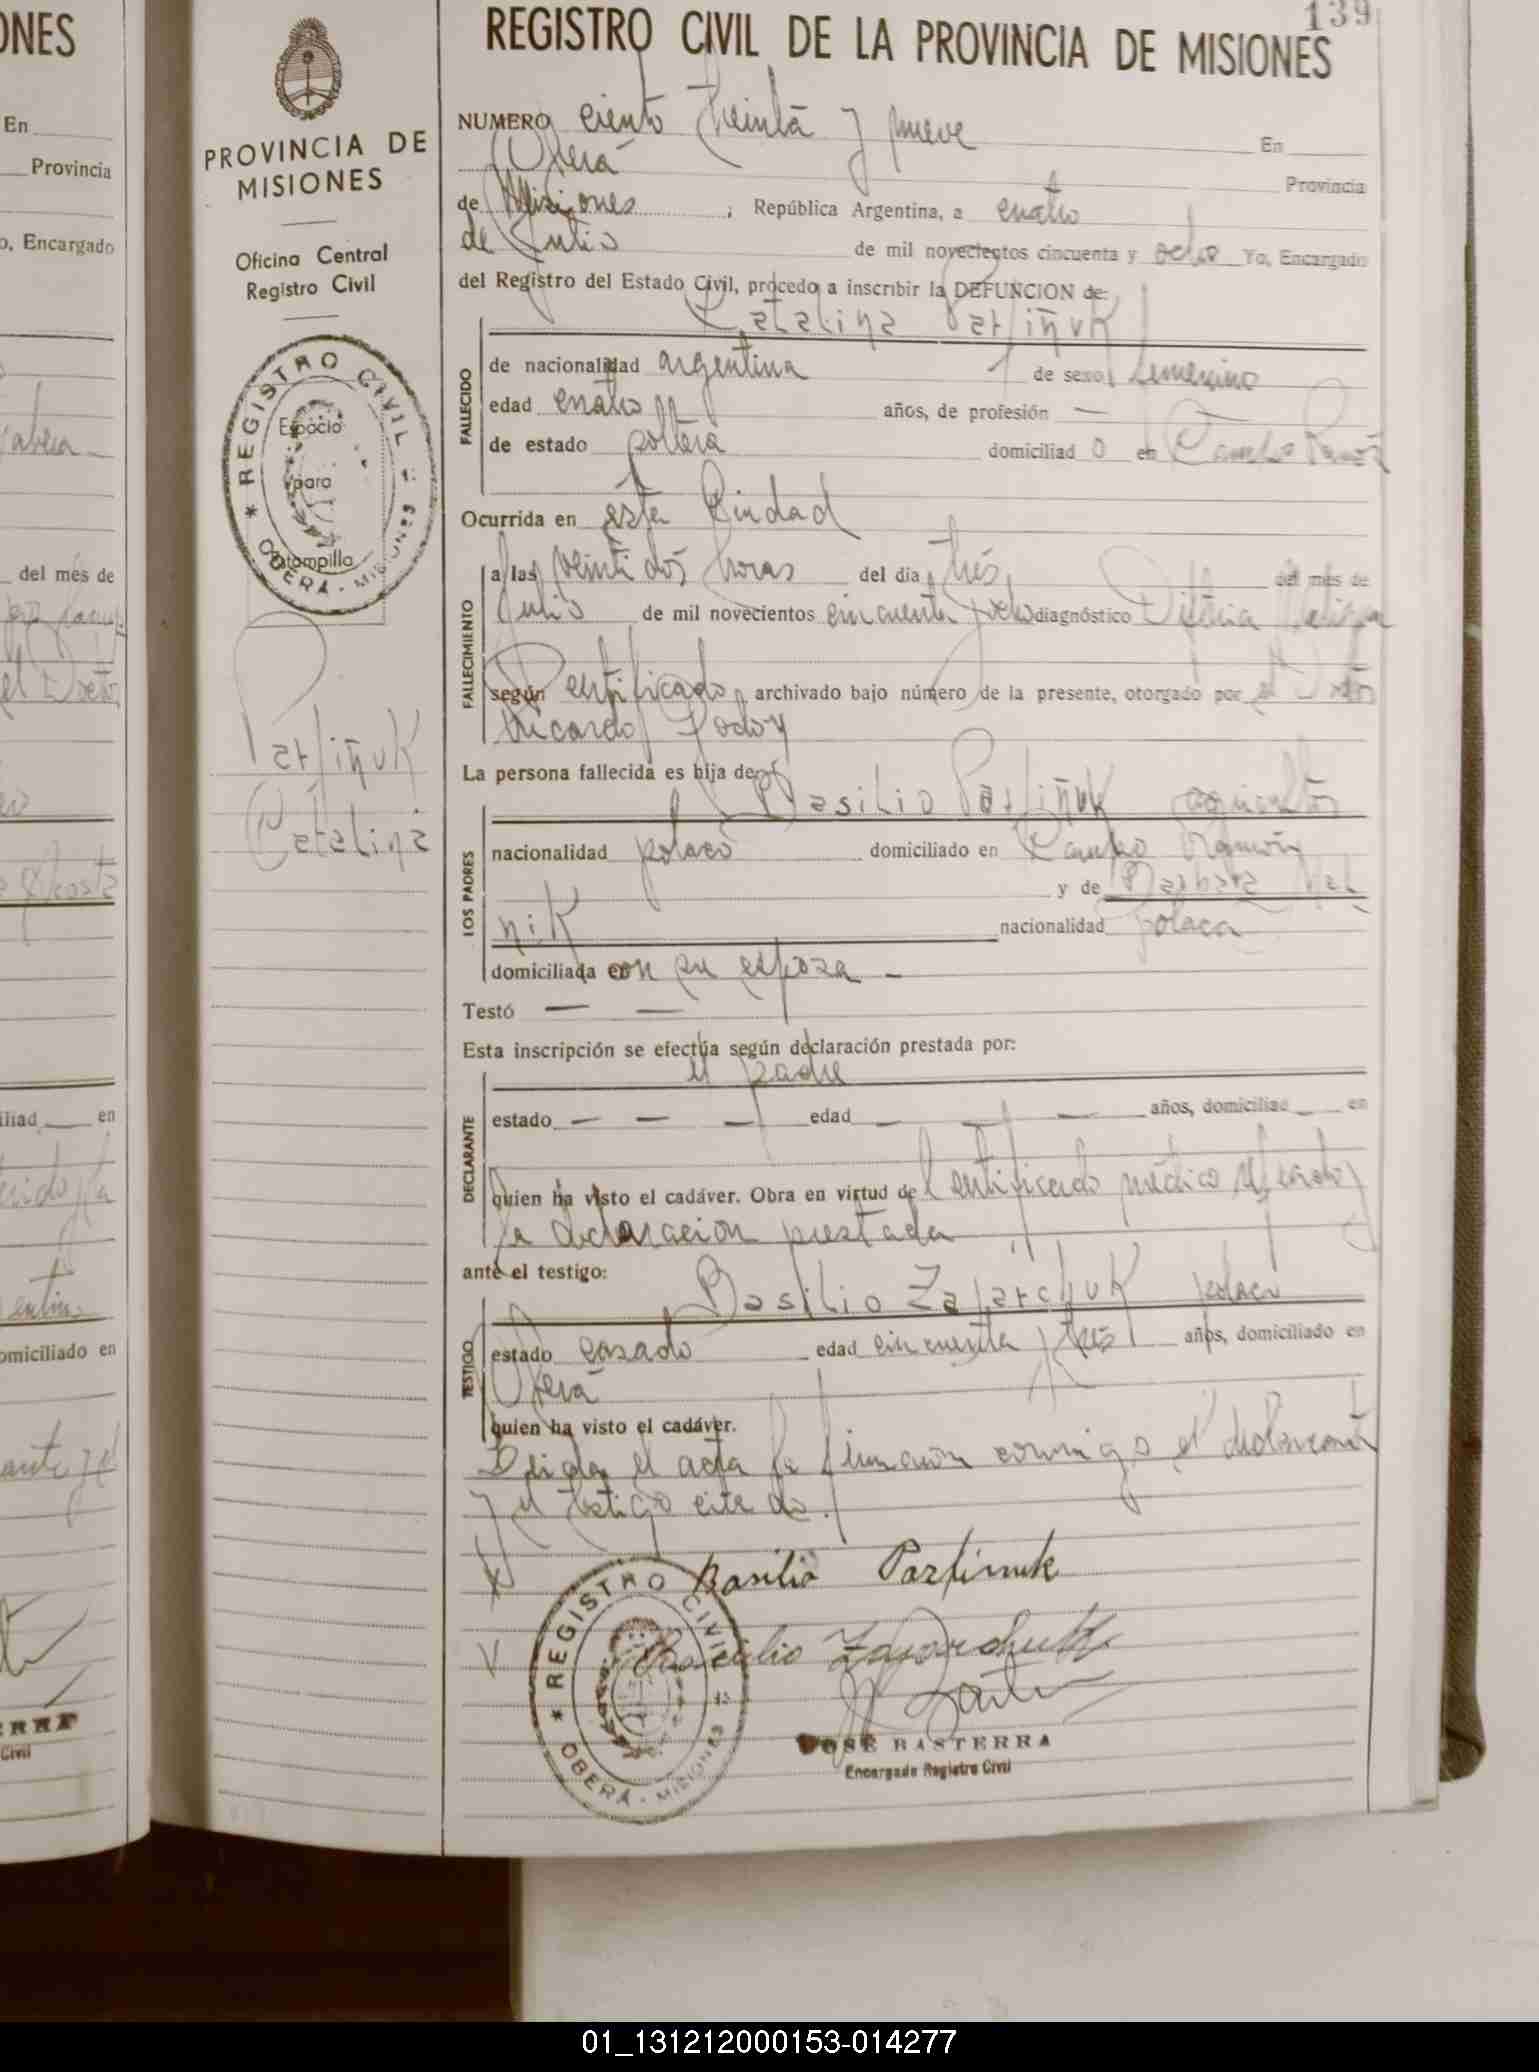 139
REGISTRO CIVIL DE LA PROVINCIA DE MISIONES
NUMERO ciento treinta y nueve En
Oberá Provincia
de Misiones, República Argentina, a cuatro
de Julio de mil novecientos cincuenta y ocho Yo, Encargado
del Registro del Estado Civil, procedo a inscribir la DEFUNCION de:
Catalina Parfiñuk
FALLECIDO
de nacionalidad argentina de sexo femenino
edad cuatro años, de profesión —
de estado soltera domiciliad o en Campo Ramón
Ocurrida en esta Ciudad
FALLECIMIENTO
a las veintidós horas del día trés del més de
Julio de mil novecientos cincuenta y ocho diagnóstico Difteria Maligna
según certificado archivado bajo número de la presente, otorgado por el Doctor
Ricardo Godoy
La persona fallecida es hija de
Basilio Parfiñuk agricultor
LOS PADRES
nacionalidad polaco domiciliado en Campo Ramón
y de Barbara
nik nacionalidad polaca
domiciliada con su espoza —
Testó — —
Esta inscripción se efectúa según declaración prestada por:
el padre
DECLARANTE
estado — — — edad — — — años, domiciliad — en
quien ha visto el cadáver. Obra en virtud del certificado médico referido y
la declaración prestada
ante el testigo:
Basilio Zajarchuk polaco
TESTIGO
estado casado edad cincuenta y trés años, domiciliado en
Oberá
quien ha visto el cadáver.
Leida el acta la firmaron conmigo el declarante
y el testigo citado.
Basilio Parfinuk
Basilio Zajarchuk
JOSÉ BASTERRA
Encargado Registro Civil
REGISTRO CIVIL
OBERÁ - MISIONES
PROVINCIA DE
MISIONES
Oficina Central
Registro Civil
REGISTRO CIVIL
Espacio
para
Estampilla
OBERÁ - MISIONES
Parfiñuk
Catalina
ONES
En
Provincia
o, Encargado
del més de
iliad en
omiciliado en
Civil
01_131212000153-014277